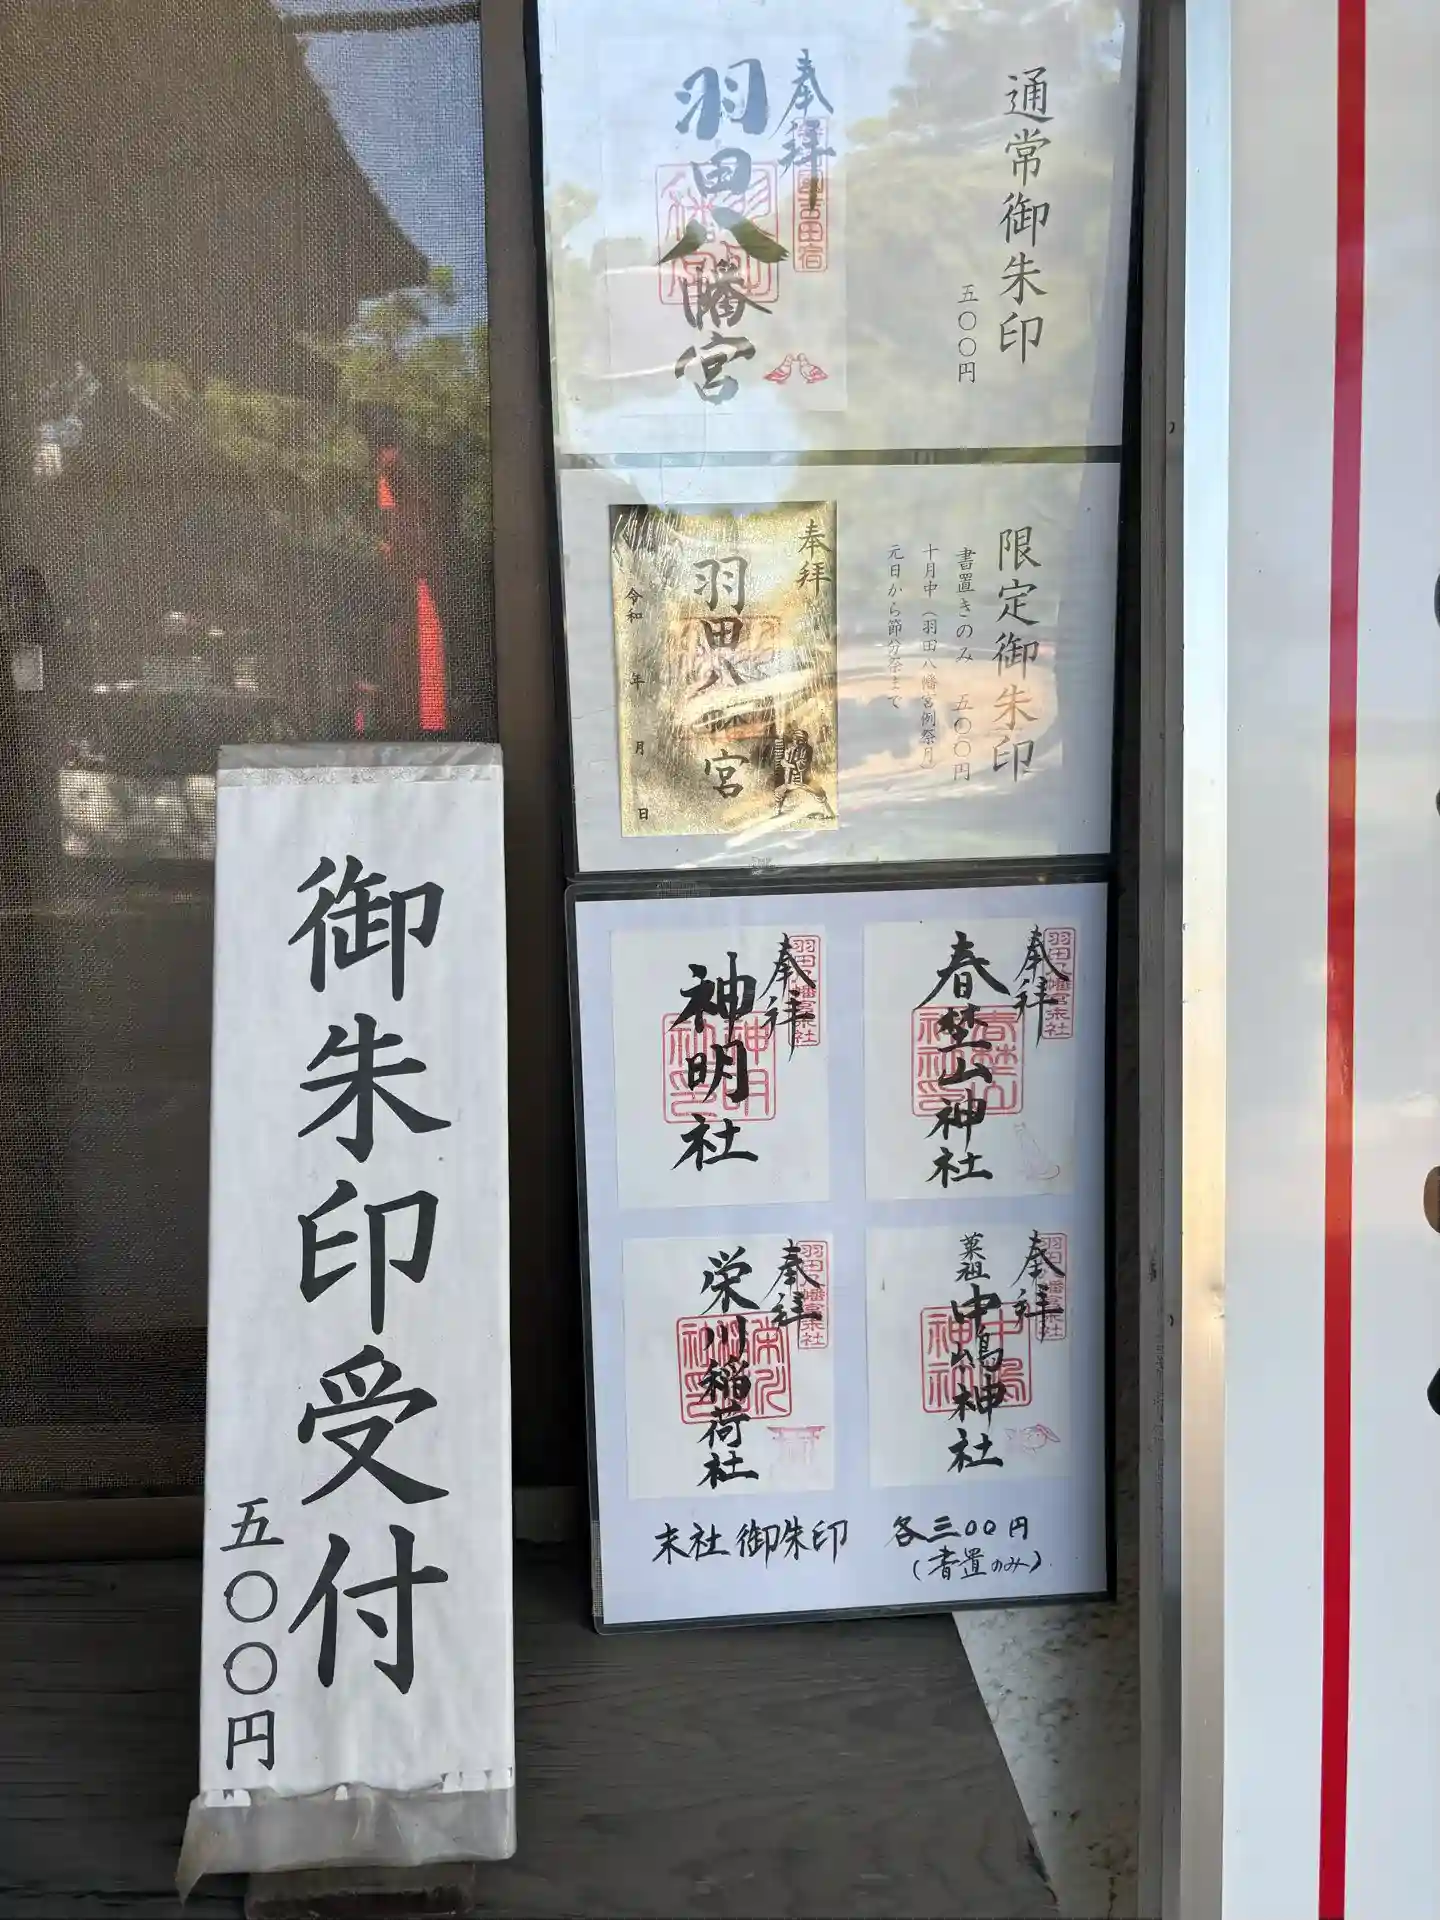 通常御朱印
五〇〇円
奉拝
羽田八幡宮
限定御朱印
書置きのみ 五〇〇円
十月中（羽田八幡宮例祭月）
元日から節分祭まで
奉拝
羽田八幡宮
令和 年 月 日
奉拝
羽田八幡宮末社
春埜山神社
奉拝
羽田八幡宮末社
神明社
奉拝
羽田八幡宮末社
菓祖
中嶋神社
奉拝
羽田八幡宮末社
栄川稲荷社
末社御朱印 各三〇〇円
（書置のみ）
御朱印受付
五〇〇円